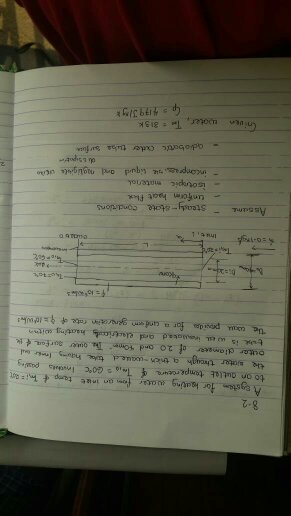 8-2
A system for heating water from an inlet temp of Tm,i = 20°C
to an outlet temperature of Tm,o = 60°C involves passing
the water through a thick-walled tube having inner and
outer diameter of 20 and 40mm. The outer surface of the
tube is well insulated and electrically heating within
the wall provides for a uniform generation rate of q = 10⁶ W/m³
q = 10⁶ W/m³
Tube
L
inlet, i
outlet, o
Tm,i = 20°C
Tm,o = 60°C
Ts,o = 70°C
Insulation
water
ṁ = 0.1 kg/s
Assume
- steady-state conditions
- uniform heat flux
- isotropic material
- incompressible liquid and negligible viscous
dissipation
- adiabatic outer tube surface
Given water, Tm = 313K
Cp = 4179 J/kg K